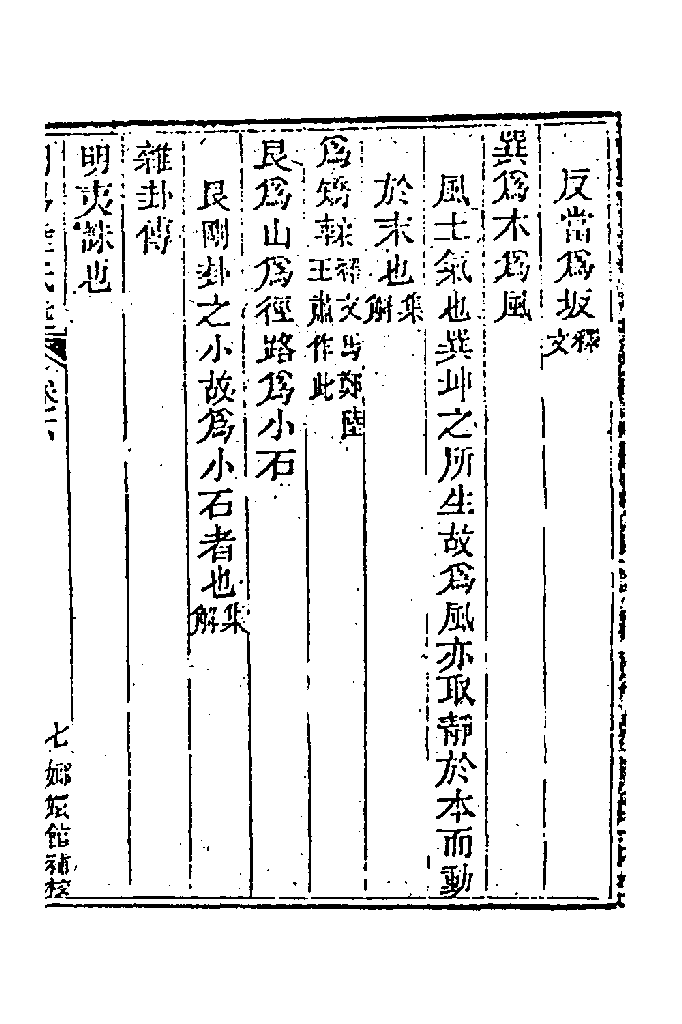 反當為坂釋文
巽為木為風
風土氣也巽坤之所生故為風亦取靜於本而動
於末也集解
為矯輮釋文馬鄭陸王肅作此
艮為山為徑路為小石
艮剛卦之小故為小石者也集解
雜卦傳
明夷誅也
七 嫏嬛館補校